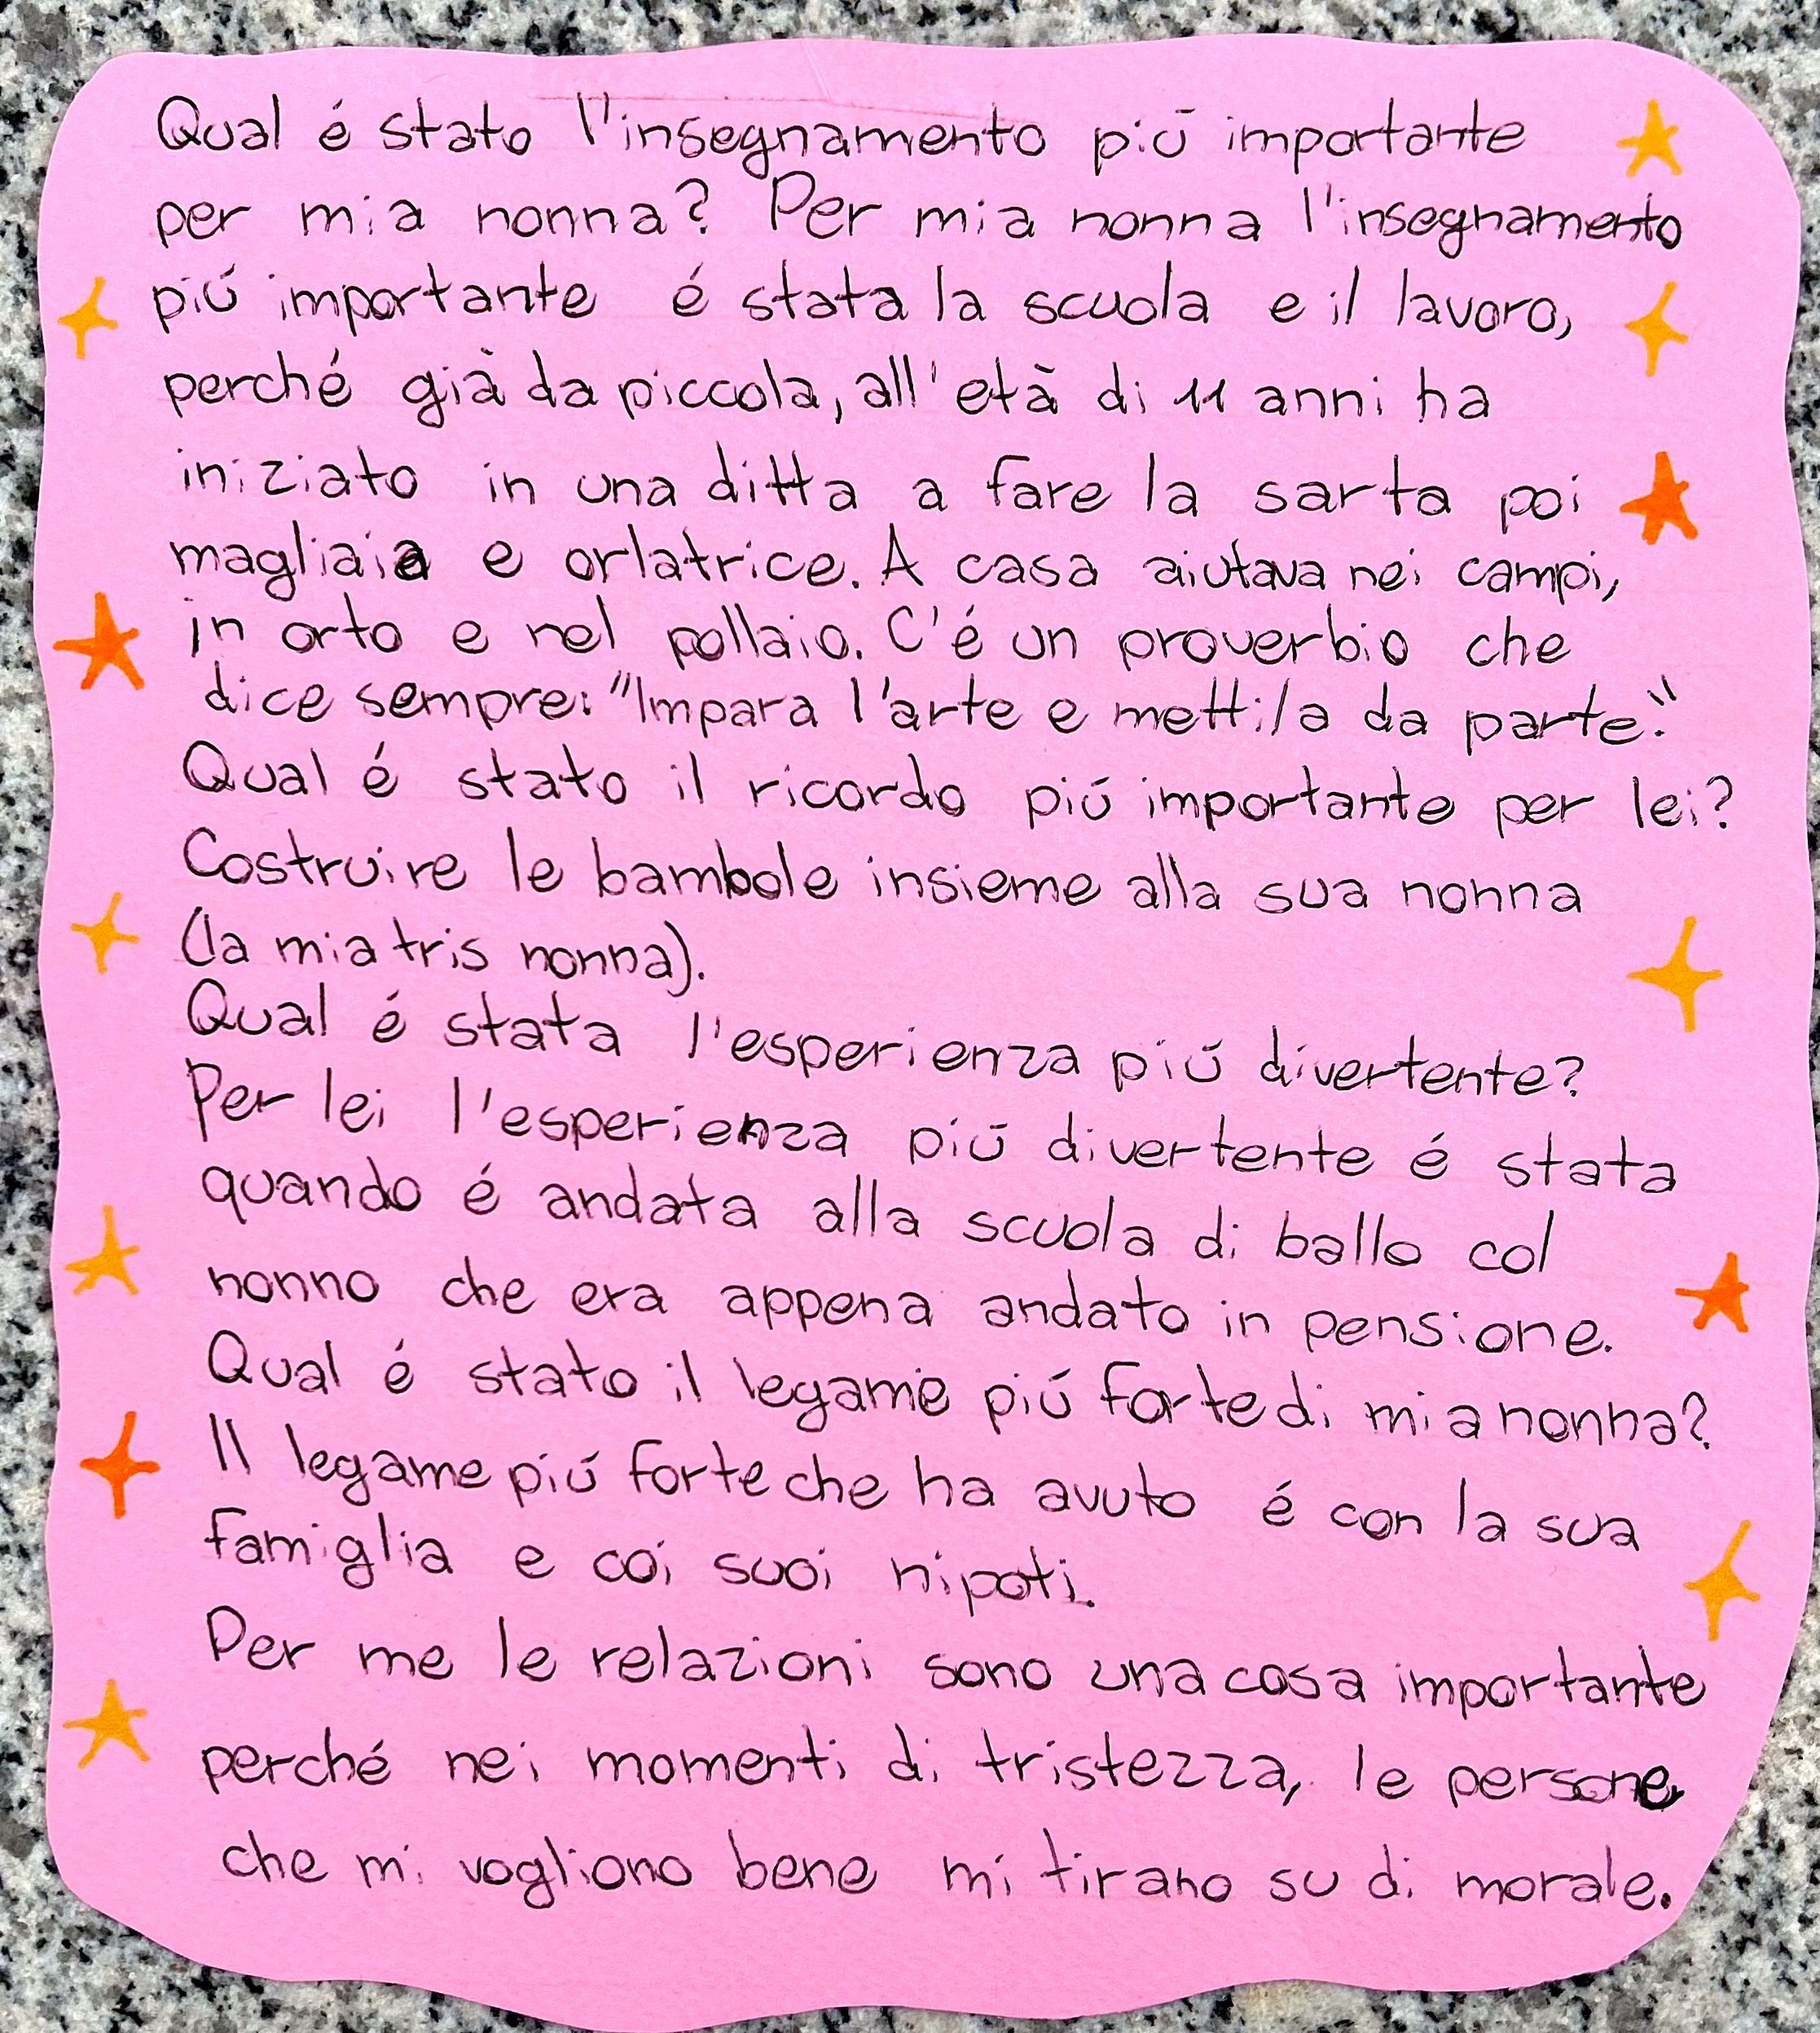 Qual é stato l'insegnamento piú importante
per mia nonna? Per mia nonna l'insegnamento
piú importante é stata la scuola e il lavoro,
perché già da piccola, all'età di 11 anni ha
iniziato in una ditta a fare la sarta poi
magliaia e orlatrice. A casa aiutava nei campi,
in orto e nel pollaio. C'é un proverbio che
dice sempre: "Impara l'arte e mettila da parte."
Qual é stato il ricordo piú importante per lei?
Costruire le bambole insieme alla sua nonna
(la mia tris nonna).
Qual é stata l'esperienza piú divertente?
Per lei l'esperienza piú divertente é stata
quando é andata alla scuola di ballo col
nonno che era appena andato in pensione.
Qual é stato il legame piú forte di mia nonna?
Il legame piú forte che ha avuto é con la sua
famiglia e coi suoi nipoti.
Per me le relazioni sono una cosa importante
perché nei momenti di tristezza, le persone
che mi vogliono bene mi tirano su di morale.